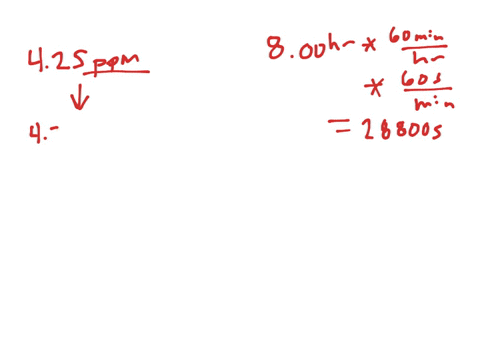 4.25 ppm
↓
4.-
8.00hr * 60min/hr
* 60s/min
= 28800s